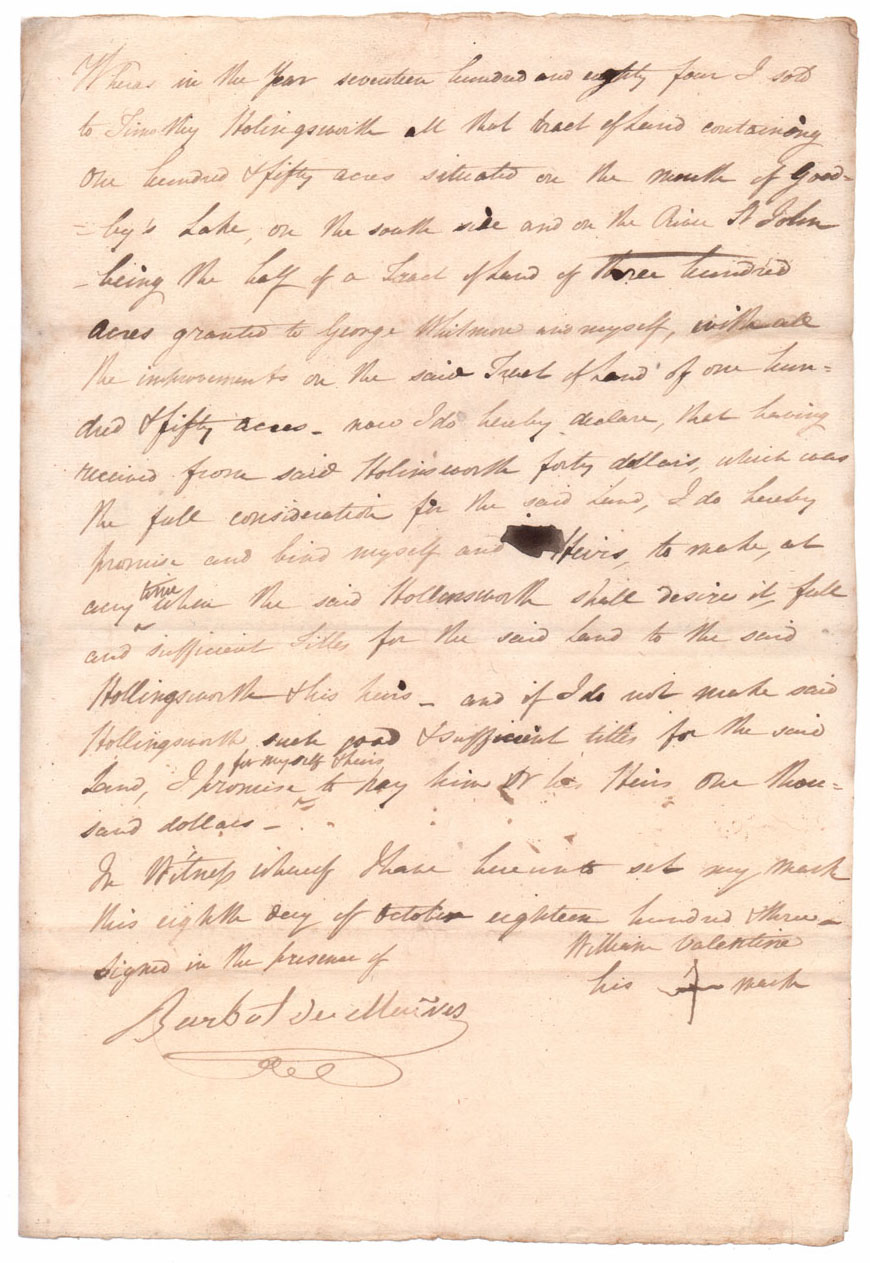 Wheras in the Year seventeen hundred and eighty four I sold
to Timothy Holingsworth all that tract of Land containing
one hundred & fifty acres situated on the mouth of Good=
=by's Lake, on the south side and on the River St John
-being the half of a Tract of Land of three hundred
acres granted to George Whitmore and myself, with all
the improvements on the said Tract of Land of one hun=
dred & fifty acres - now I do hereby declare, that having
received from said Holinsworth forty dollars, which was
the full consideration for the said Land, I do hereby
promise and bind myself and Heirs, to make, at
any time when the said Hollensworth shall desire it, full
and sufficient Titles for the said Land to the said
Hollingsworth & his heirs - and if I do not make said
Hollingsworth such good & sufficient titles for the said
for myself & heirs
Land, I promise to pay him or his Heirs one thou=
sand dollars -
In Witness whereof I have hereunto set my mark
this eighth day of October eighteen hundred & three -
William Valentine
signed in the presence of
his mark